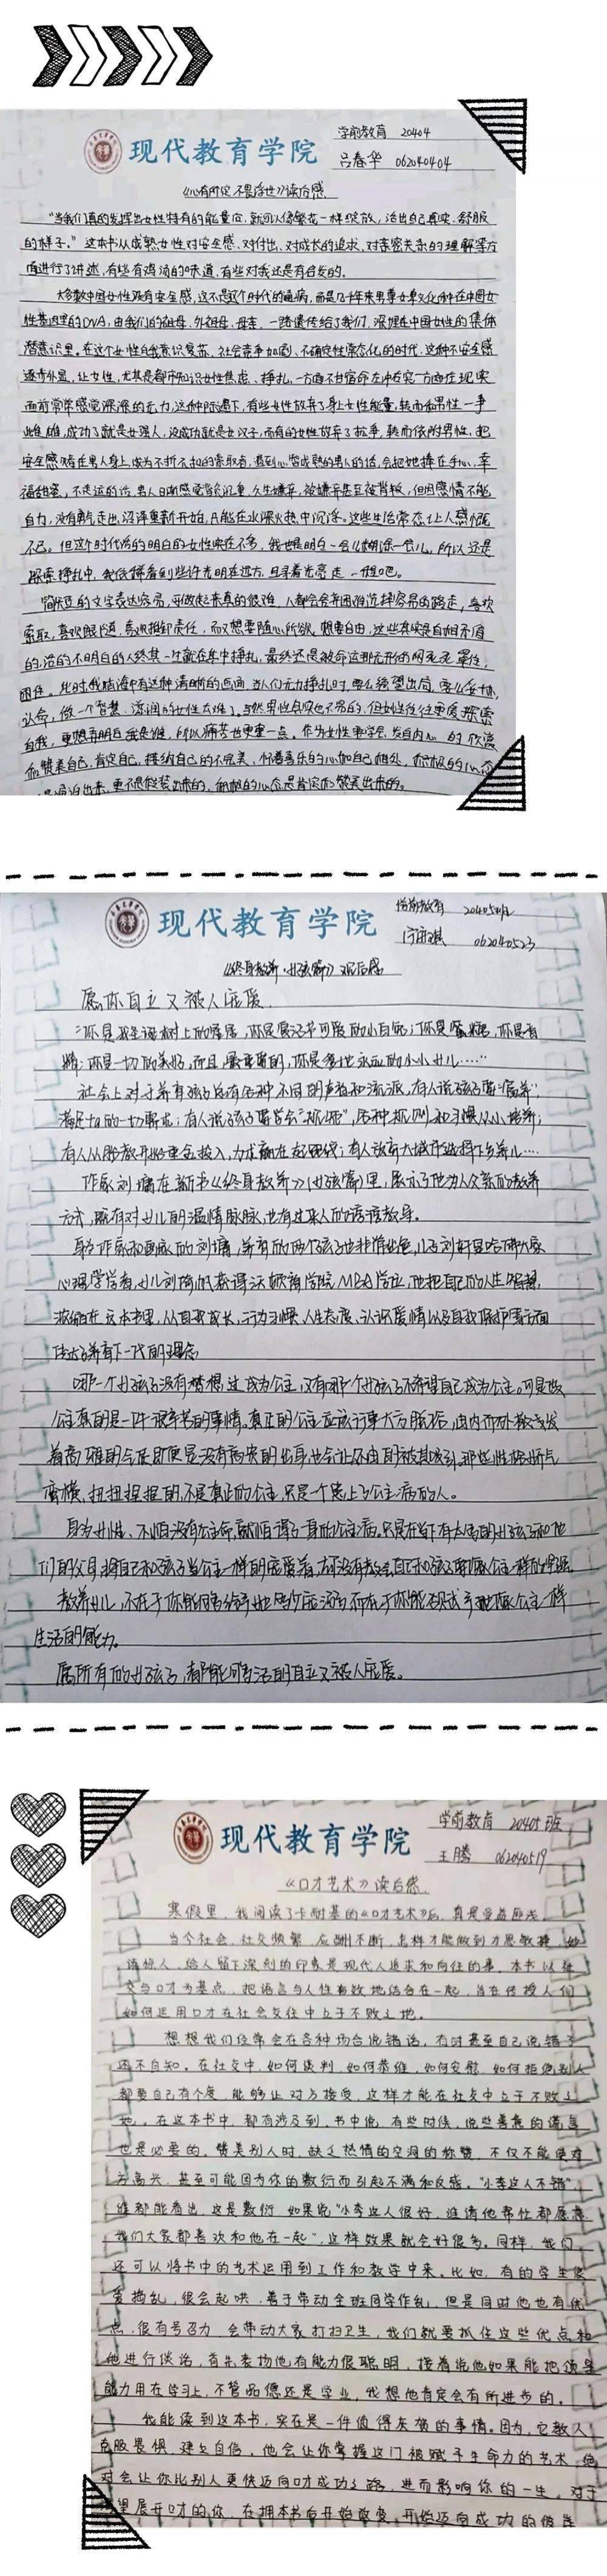 现代教育学院
学前教育 20404
吕春华 062040404
《心有所定 不畏浮世》读后感
“当我们真的发挥出女性特有的能量位,就可以像繁花一样绽放,活出自己真实、舒服
的样子。”这本书从成熟女性对安全感、对付出、对成长的追求、对亲密关系的理解等方
面进行了讲述,有些有鸡汤的味道,有些对我还是有启发的。
大多数中国女性没有安全感,这不是这个时代的通病,而是几千年来男尊女卑文化种在中国女
性基因里的DNA,由我们的祖母、外祖母、母亲,一路遗传给了我们,深埋在中国女性的集体
潜意识里。在这个女性自我意识复苏、社会竞争加剧、不确定性常态化的时代,这种不安全感
逐步外显,让女性,尤其是都市知识女性焦虑、挣扎,一方面不甘宿命左冲右突一方面在现实
面前常常感觉深深的无力,这种际遇下,有些女性放弃了身上女性能量,转而和男性一争
雌雄,成功了就是女强人,没成功就是女汉子,而有的女性放弃了抗争,转而依附男性,把
安全感寄在男人身上,成为不折不扣的索取者,遇到心智成熟的男人的话,会把她捧在手心,幸
福甜蜜,不走运的话,男人日渐感觉沉重,久生嫌弃,被嫌弃甚至被背叛,但因感情不能
自力,没有勇气走出沼泽重新开始,只能在水深火热中沉浮。这些生活常态让人感慨
不已。但这个时代活的明白的女性实在不多,我也是明白一会儿糊涂一会儿,所以还是
探索挣扎中,我依稀看到些许光明在远方,且寻着光亮走一程吧。
简朴的文字表达容易,可做起来真的很难,人都会舍弃困难选择容易的路走,喜欢
索取,喜欢跟随,喜欢推卸责任,而又想要随心所欲,想要自由,这些其实是自相矛盾
的,活的不明白的人终其一生就在其中挣扎,最终还是被命运那无形的网死死罩住,
困住。
认命,做一个智慧、滋润的女性太难了。当然男性会难也不易的,但女性往往更爱探索
自我,更想弄明白我是谁,所以痛苦也更重一点。作为女性要学会发自内心的欣赏
和赞美自己,肯定自己,接纳自己的不完美,怀着喜乐的心和自己相处,积极的心态
现代教育学院
学前教育 20405班
062040523
《终身教养·女孩篇》观后感
愿你自立又被人宠爱
“你是我圣诞树上的星星,你是复活节可爱的小白兔;你是蜜糖,你是香
精;你是一切的美好,而且,最重要的,你是爹地永远的小小女儿……”
社会上对于养育孩子总有各种不同的声音和流派,有人说孩子要“富养”,
满足ta的一切需求;有人说孩子要学会“规矩”,各种规则和习惯从小培养;
有人从胎教开始重金投入,力求赢在起跑线;有人放弃大城市选择下乡养儿……
作家刘墉在新书《终身教养》(女孩篇)里,展示了他为人父亲的教养
方式,既有对女儿的温情脉脉,也有过来人的谆谆教导。
身为作家和画家的刘墉,养育的两个孩子也非常出色,儿子刘轩是哈佛大学
心理学学者,女儿刘倚帆获得沃顿商学院MBA学位,他把自己的人生智慧,
浓缩在这本书里,从自我成长、行为习惯、人生态度、认识爱情以及自我保护等方面
传达了养育下一代的理念。
哪一个女孩子没有梦想过成为公主,没有哪个女孩子不希望自己成为公主。可是做
公主真的是一件很辛苦的事情。真正的公主应该行事大方得体,由内而外散发
着高雅的气质,即便是没有高贵的出身也会让外面的被其吸引。那些性格娇气
蛮横、扭扭捏捏的,不是真正的公主,只是个患上了公主病的人。
身为女性,不怕没有公主命,就怕得了一身的公主病。只是在当下有太多的女孩子和他
们的父母,将自己和孩子当公主一样的宠爱着,却没有教会自己和孩子要像公主一样的坚强。
教养女儿,不在于你能够给予她多少庇护,而在于你能否赋予她像公主一样
生活的能力。
愿所有的女孩子,都能够活的自立又被人宠爱。
现代教育学院
学前教育 20405班
王腾 062040519
《口才艺术》读后感
寒假里,我阅读了卡耐基的《口才艺术》后,真是受益匪浅。
当今社会,社交频繁,应酬不断,怎样才能做到才思敏捷,妙
语惊人,给人留下深刻的印象是现代人追求和向往的事。本书以社
交与口才为基点,把语言与人性有效地结合在一起,旨在传授人们
如何运用口才在社会交往中立于不败之地。
想想我们经常会在各种场合说错话,有时甚至自己说错了
还不自知。在社交中,如何谈判,如何恭维,如何安慰,如何拒绝别人
都要自己有个度,能够让对方接受,这样才能在社交中立于不败之
地。在这本书中,都有涉及到,书中说,有些时候,说些善意的谎言
也是必要的,赞美别人时,缺乏热情的空洞的称赞,不仅不能使对
方高兴,甚至可能因为你的敷衍而引起不满和反感。“小李这人不错”,
谁都能看出,这是敷衍,如果说“小李这人很好,谁请他帮忙都愿意
我们大家都喜欢和他在一起”,这样效果就会好很多。同样,我们
还可以将书中的艺术运用到工作和教学中来。比如,有的学生很
爱捣乱,很会起哄,善于带动全班同学作乱,但是同时他也有优
点,很有号召力,会带动大家打扫卫生,我们就要抓住这些优点和
他进行谈话,首先表扬他有能力很聪明,接着说他如果能把领导
能力用在学习上,不管品德还是学业,我想他肯定会有所进步的。
我能读到这本书,实在是一件值得庆贺的事情。因为,它教人
克服畏惧,建立自信,他会让你掌握这门被赋予生命力的艺术,绝
对会让你比别人更快迈向口才成功之路,进而影响你的一生。对于
里展开口才的你,在拥本书后开始蜕变,开始迈向成功的彼岸